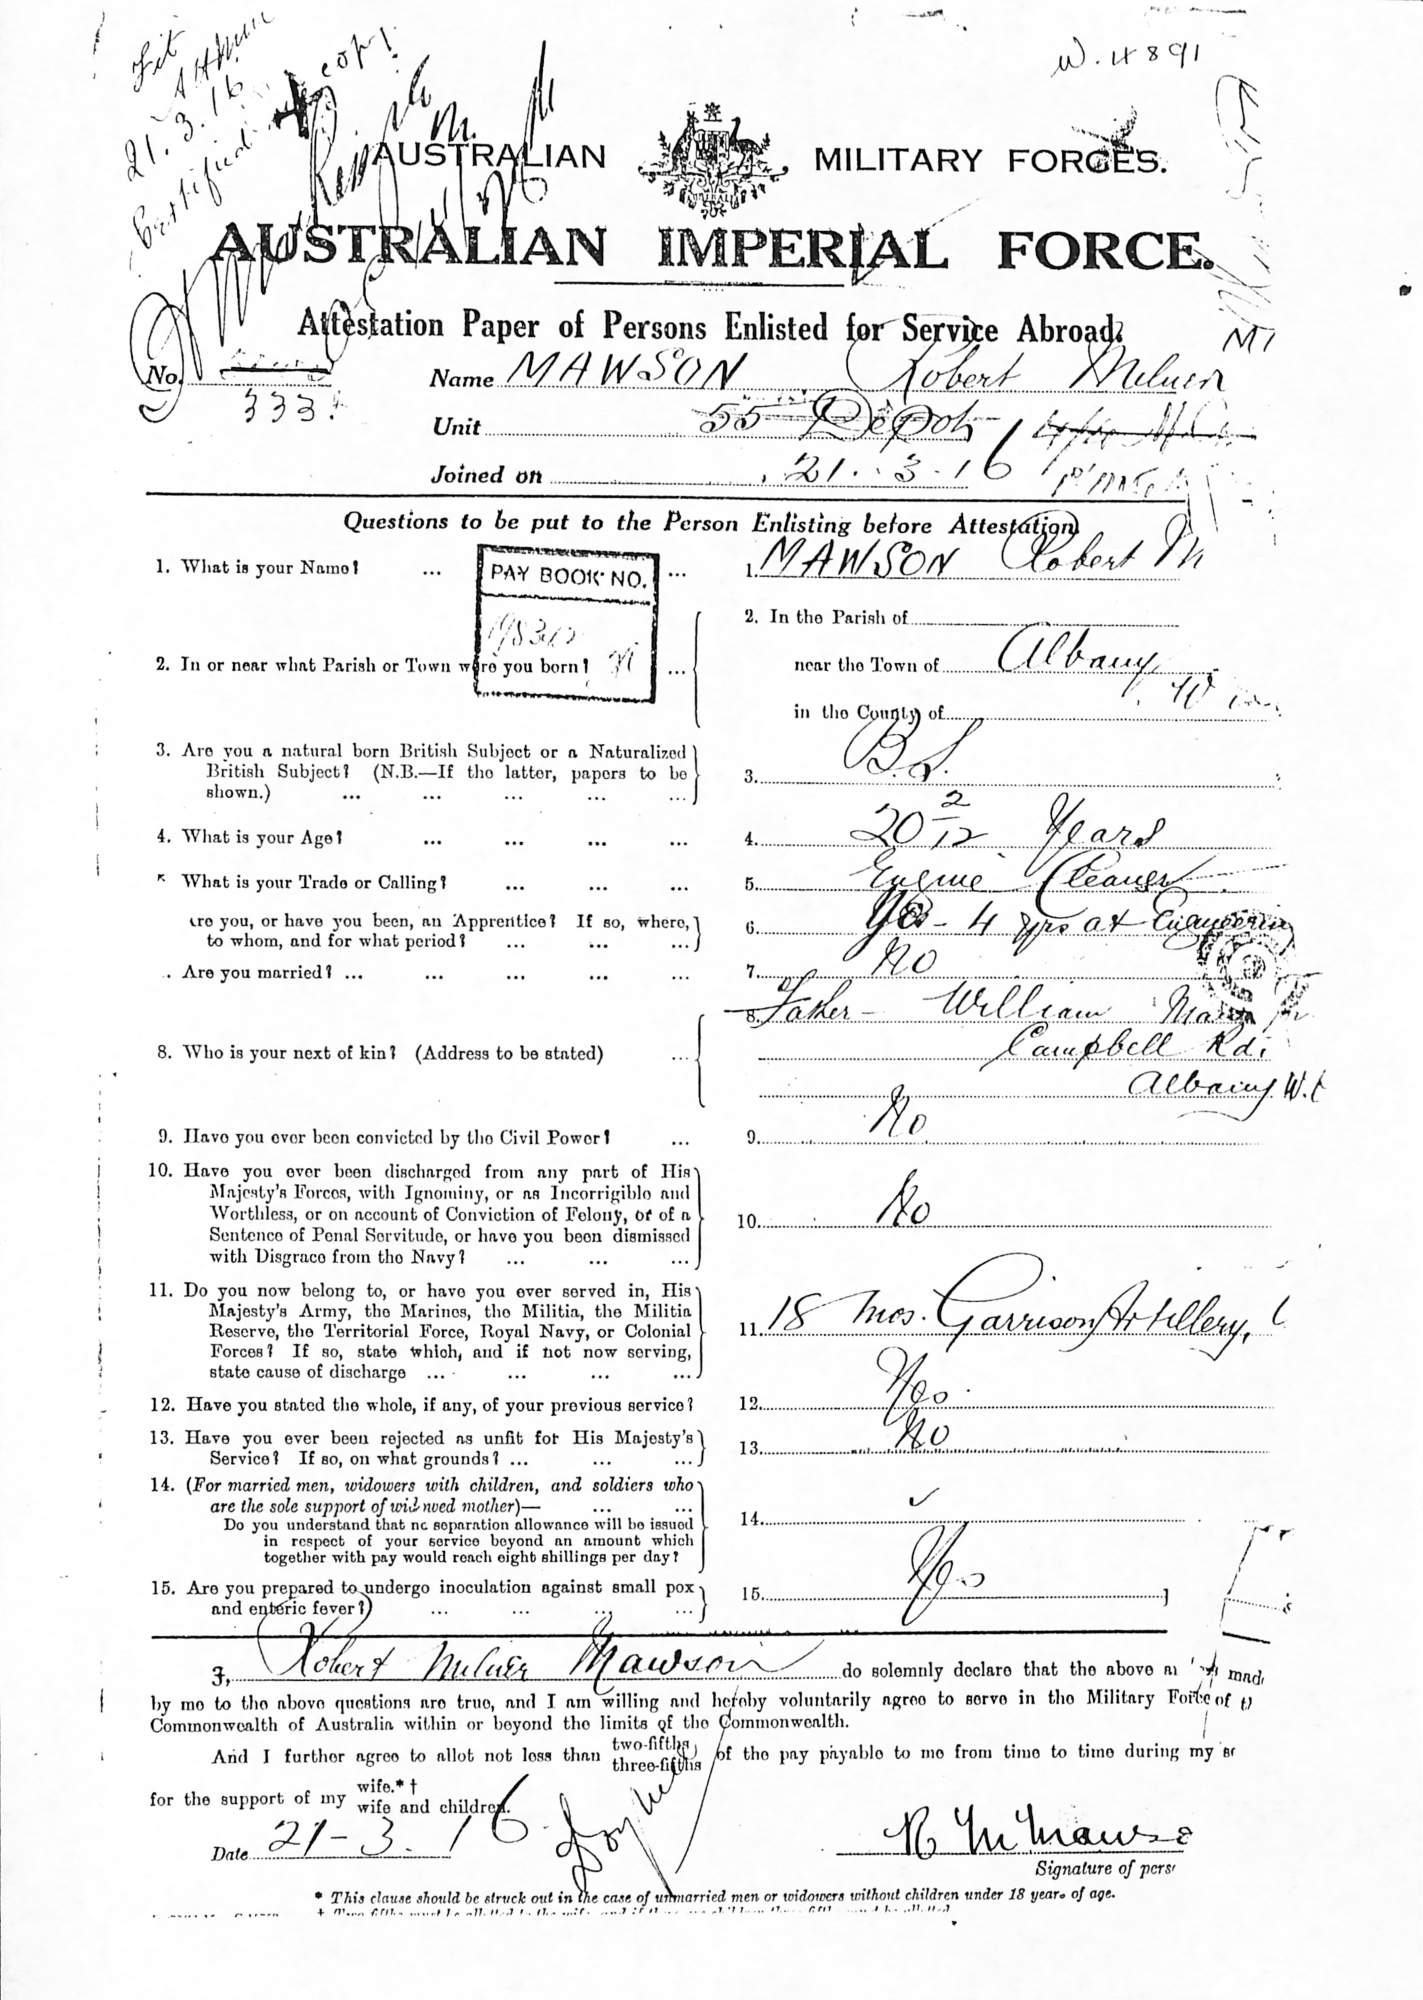 Fit
21.3.16
Certified copy
W.4891
AUSTRALIAN MILITARY FORCES.
AUSTRALIAN IMPERIAL FORCE.
Attestation Paper of Persons Enlisted for Service Abroad.
No. Name MAWSON Robert Milner
333
Unit 55 Depot
Joined on 21.3.16
Questions to be put to the Person Enlisting before Attestation
1. What is your Name? ... ... 1. MAWSON Robert M
PAY BOOK NO.
2. In the Parish of
2. In or near what Parish or Town were you born? ... near the Town of Albany
in the County of
3. Are you a natural born British Subject or a Naturalized
British Subject? (N.B.—If the latter, papers to be
shown.) ... ... ... ... ... 3. B.S.
4. What is your Age? ... ... ... ... 4. 20 2/12 Years
What is your Trade or Calling? ... ... ... 5. Engine Cleaner
are you, or have you been, an Apprentice? If so, where,
to whom, and for what period? ... ... ... 6. Yes - 4 yrs at Engineering
Are you married? ... ... ... ... ... 7. No
8. Father - William
8. Who is your next of kin? (Address to be stated) ... Campbell Rd.
Albany W.
9. Have you ever been convicted by the Civil Power? ... 9. No
10. Have you ever been discharged from any part of His
Majesty's Forces, with Ignominy, or as Incorrigible and
Worthless, or on account of Conviction of Felony, or of a
Sentence of Penal Servitude, or have you been dismissed
with Disgrace from the Navy? ... ... ... 10. No
11. Do you now belong to, or have you ever served in, His
Majesty's Army, the Marines, the Militia, the Militia
Reserve, the Territorial Force, Royal Navy, or Colonial
Forces? If so, state which, and if not now serving,
state cause of discharge ... ... ... ... 11. 18 mos. Garrison Artillery,
12. Have you stated the whole, if any, of your previous service? 12. Yes
13. Have you ever been rejected as unfit for His Majesty's
Service? If so, on what grounds? ... ... ... 13. No
14. (For married men, widowers with children, and soldiers who
are the sole support of widowed mother)— ... ...
Do you understand that no separation allowance will be issued
in respect of your service beyond an amount which
together with pay would reach eight shillings per day? 14.
15. Are you prepared to undergo inoculation against small pox
and enteric fever? ... ... ... ... 15. Yes
I, Robert Milner Mawson do solemnly declare that the above made
by me to the above questions are true, and I am willing and hereby voluntarily agree to serve in the Military Force of
Commonwealth of Australia within or beyond the limits of the Commonwealth.
And I further agree to allot not less than two-fifths three-fifths of the pay payable to me from time to time during my
for the support of my wife.* † wife and children.
Date 21-3.16
R M Mawso
Signature of pers
* This clause should be struck out in the case of unmarried men or widowers without children under 18 years of age.